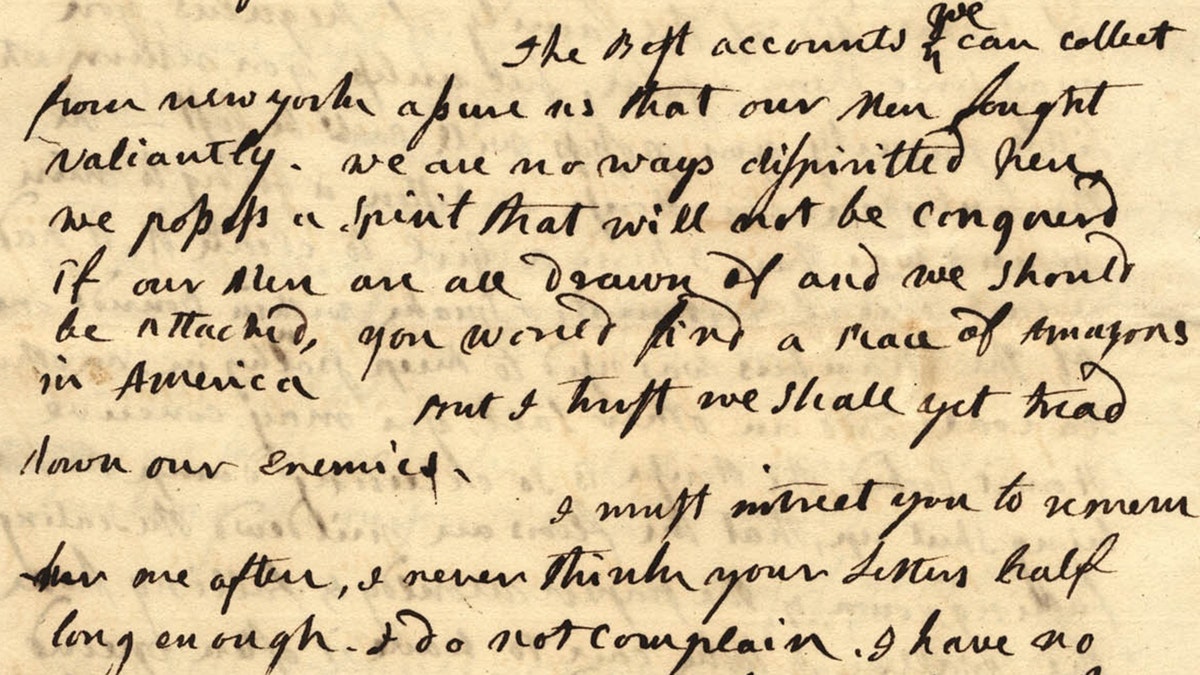 The Best accounts we can collect
from new york assure us that our Men fought
valiantly. we are no ways dispiritted here,
we possess a Spirit that will not be conquerd
If our Men are all drawn of and we should
be Attacked, you would find a Race of Amazons
in America
But I trust we shall yet tread
down our Enemies.
I must intreet you to remem
ber me often, I never think your Letters half
long enough. I do not complain. I have no